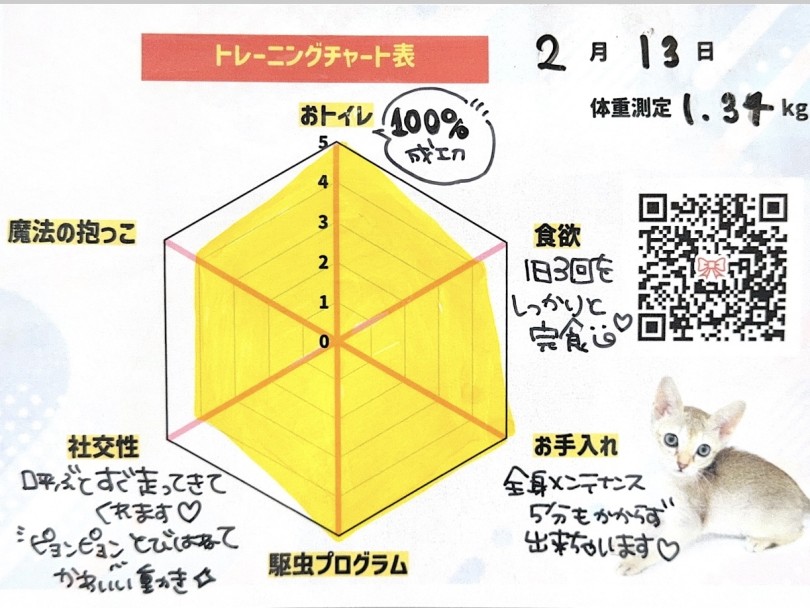 トレーニングチャート表
2月13日
体重測定 1.34 kg
おトイレ
100%
成功
5
4
3
2
1
0
魔法の抱っこ
食欲
1日3回を
しっかりと
完食
社交性
呼ぶとすぐ走ってきて
くれます♡
ピョンピョンとびはねて
かわいい動き☆
お手入れ
全身メンテナンス
5分もかからず
出来ちゃいます♡
駆虫プログラム